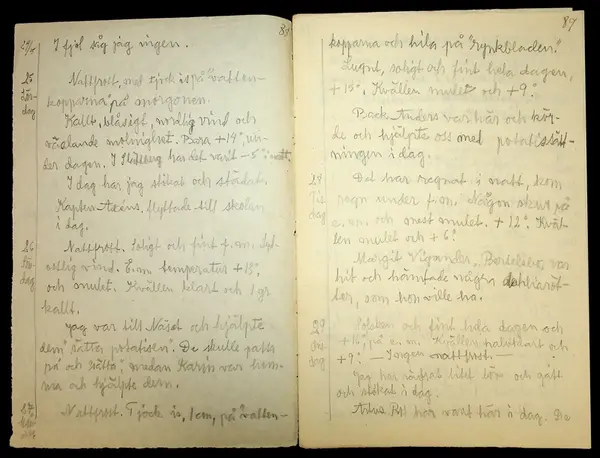 I fjol såg jag ingen.
25
Nattfrost, med tjock is på "vatten-
kopparna" på morgonen.
Kallt, blåsigt, nordlig vind och
växlande molnighet. Bara +14°, un-
der dagen. I har det varit -5° i natt.
I dag har jag stökat och städat.
flyttade till skolen
i dag.
26
Nattfrost. Soligt och fint f.m. Syd-
ostlig vind. E.m. temperatur +13°,
och mulet. Kvällen klart och 1 gr
kallt.
Jag var till och hjälpte
dem "sätta potatisen". De skulle
på och "sätta", medan Karin var hem-
ma och hjälpte dem.
27
Nattfrost. Tjock is, 1 cm, på "vatten-
89
kopparna och hila på "Rynkbladen."
Lugnt, soligt och fint hela dagen,
+15°. Kvällen mulet och +9°.
Back Anders var här och kör-
de och hjälpte oss med potatissätt-
ningen i dag.
Det har regnat i natt, kom
regn under f.m. Någon skur på
e.m. och mest mulet. +12°. Kväl-
len mulet och +6°.
Margit var
hit och hämtade några dahliaröt-
ter, som hon ville ha.
29
och fint hela dagen och
+16°, på e.m. Kvällen halvklart och
+7° — Ingen nattfrost —
Jag har litet och gått
och stökat i dag.
har varit här i dag. De